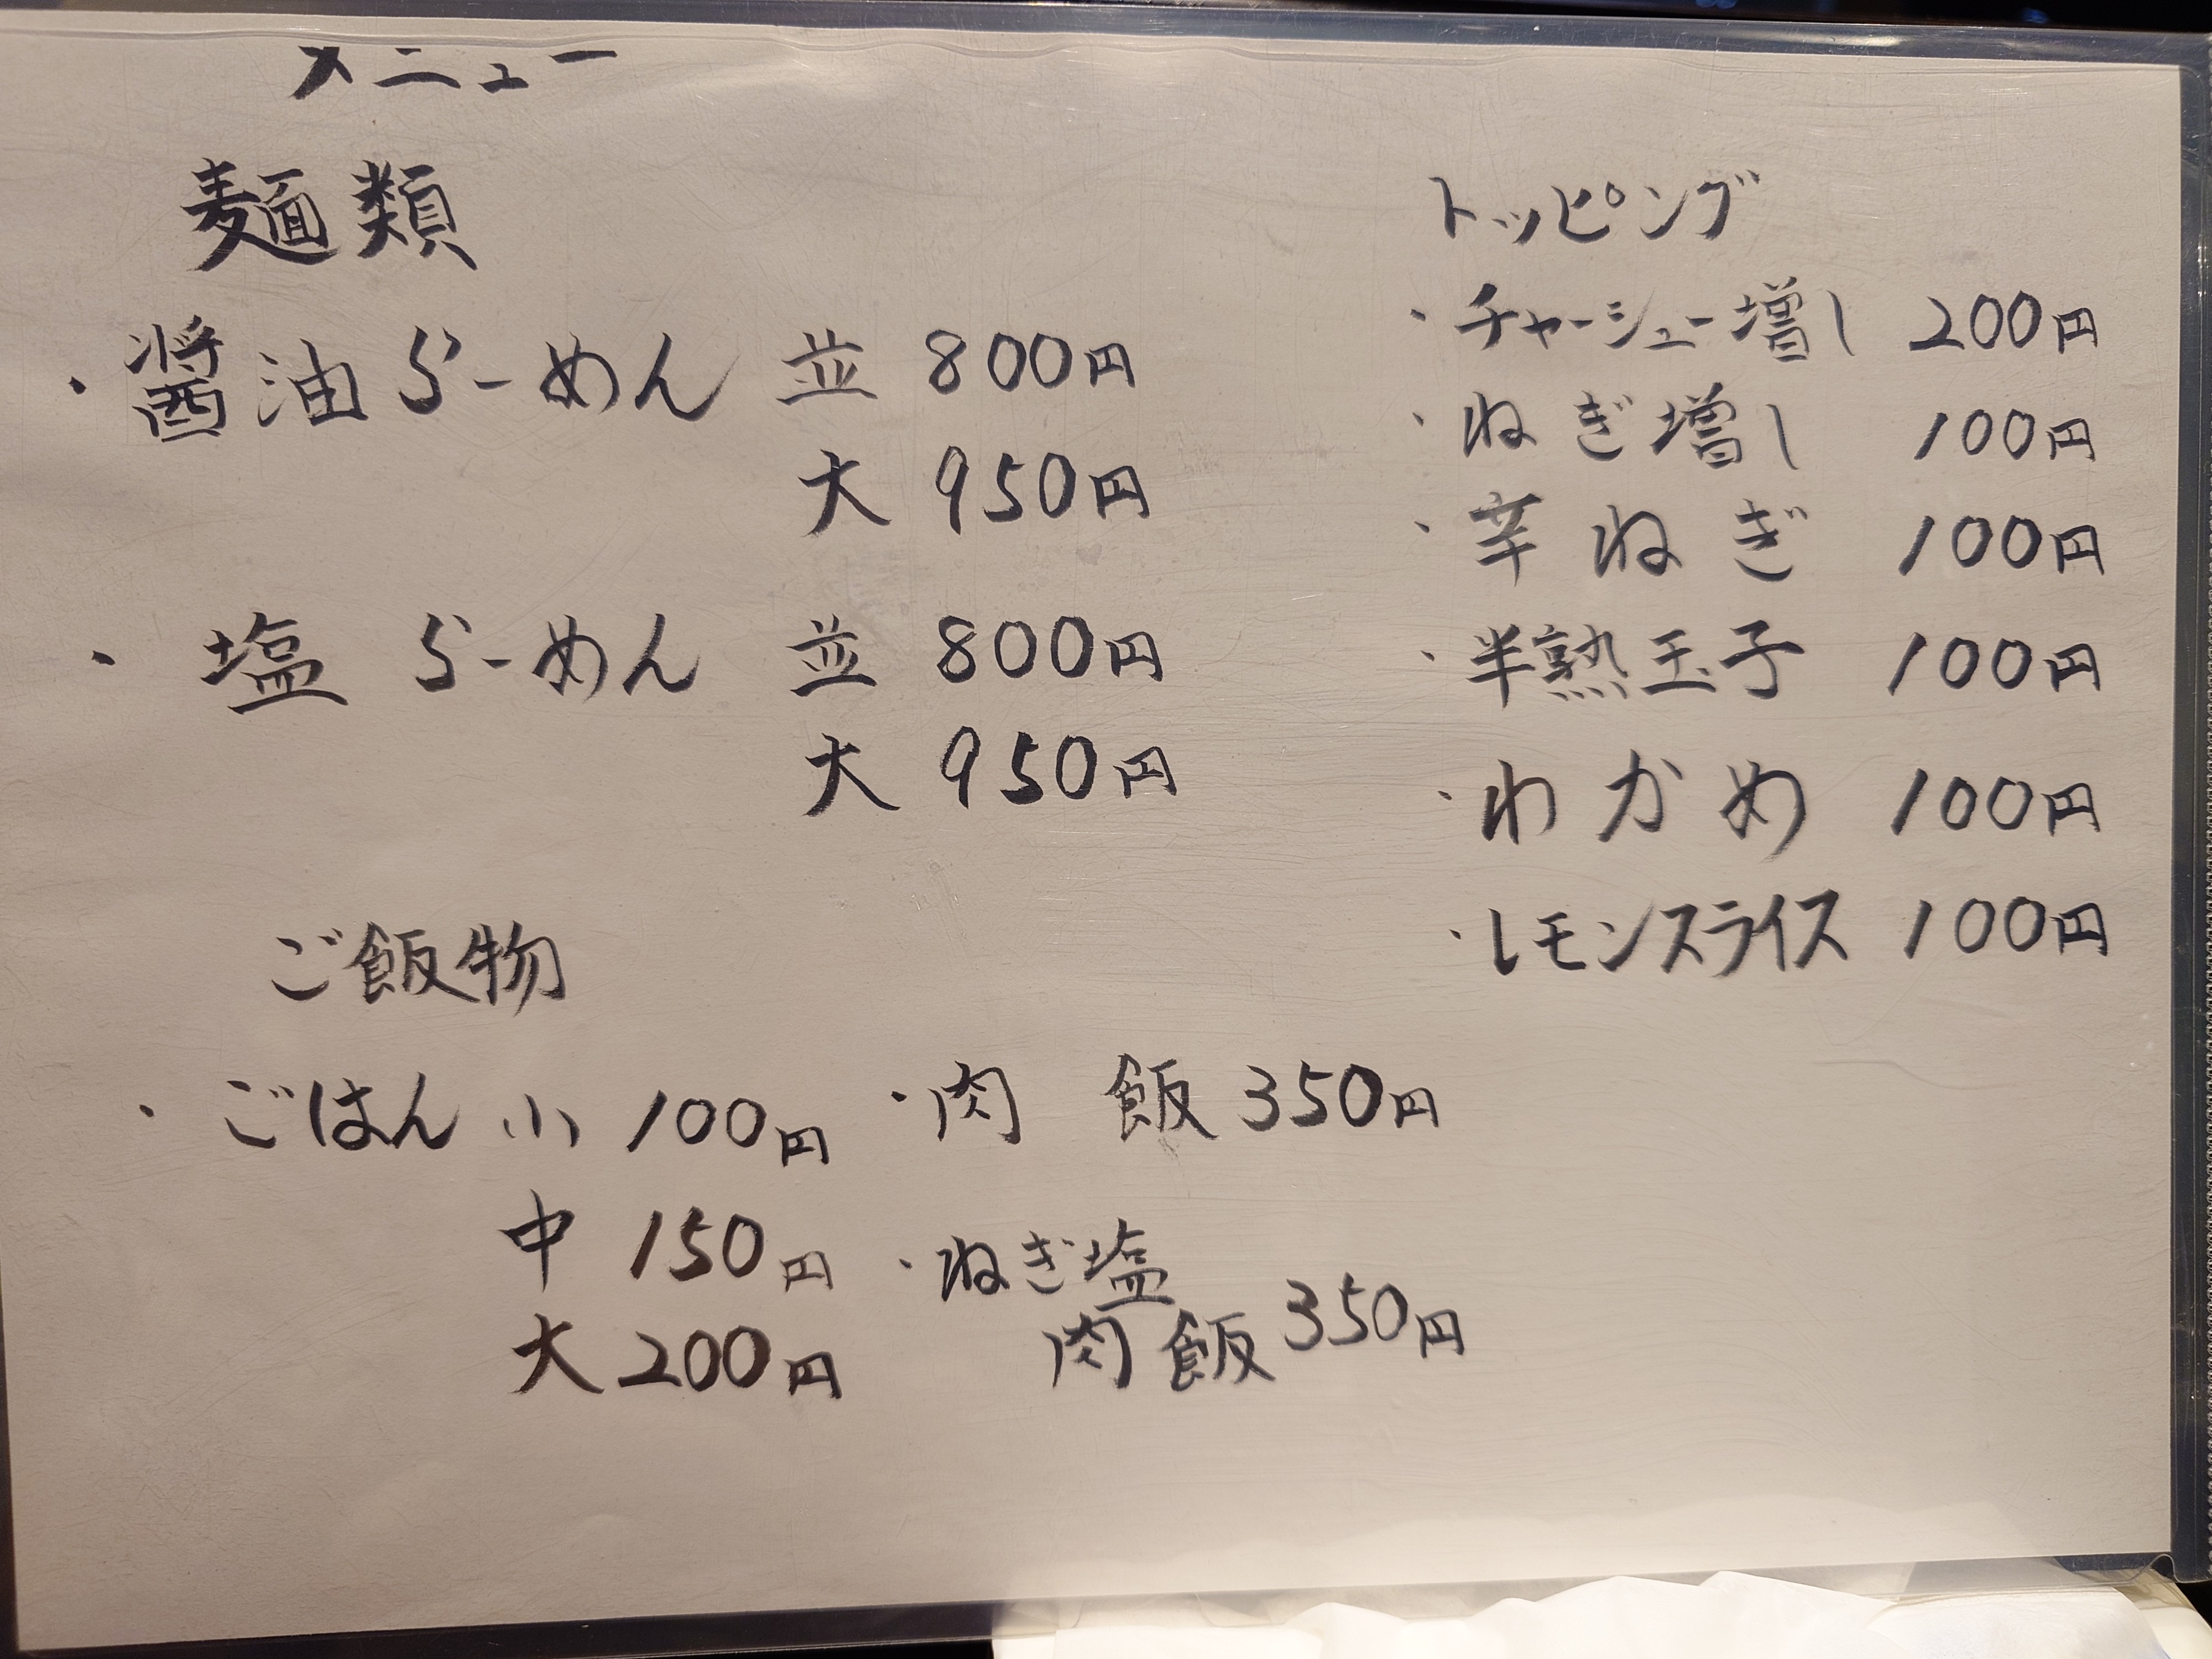 メニュー
麺類
・醤油らーめん 並 800円
大 950円
・塩 らーめん 並 800円
大 950円
ご飯物
・ごはん 小 100円
中 150円
大 200円
・肉 飯 350円
・ねぎ塩
肉飯 350円
トッピング
・チャーシュー増し 200円
・ねぎ増し 100円
・辛ねぎ 100円
・半熟玉子 100円
・わかめ 100円
・レモンスライス 100円